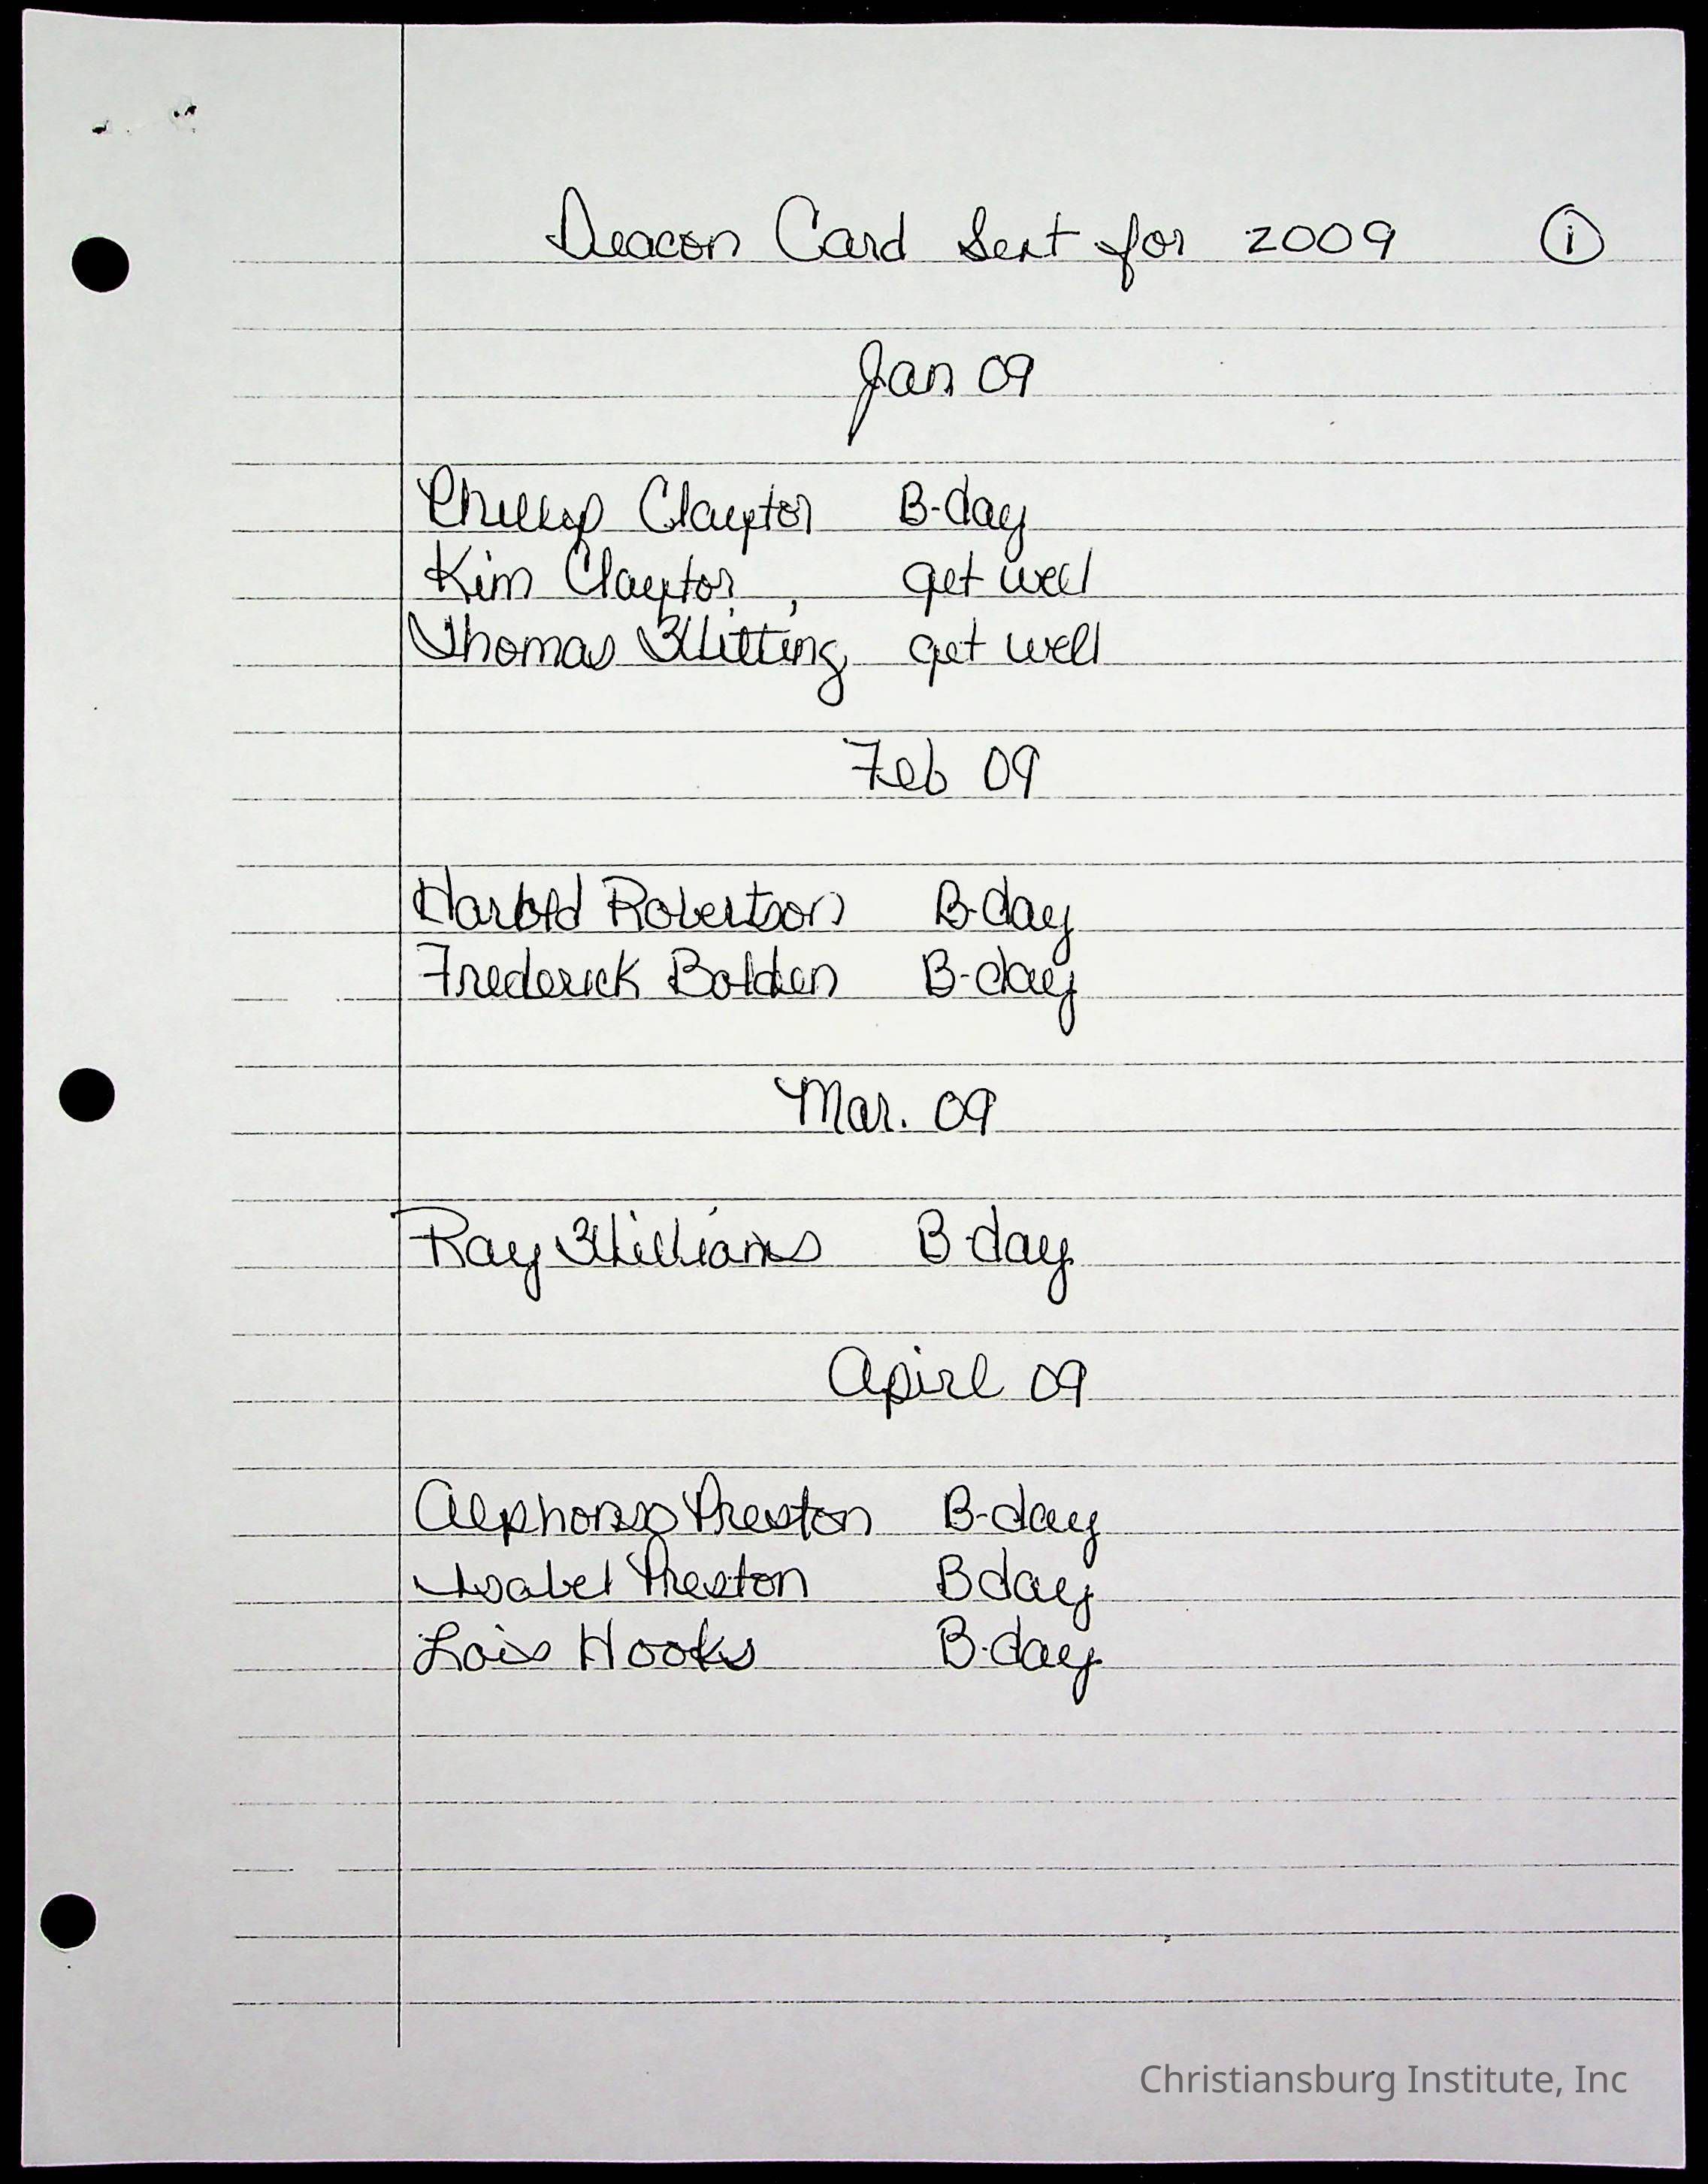 Deacon Card Sent for 2009 1
Jan 09
Phillip Claytor B-day
Kim Claytor, get well
Thomas Witting get well
Feb 09
Harold Robertson B-day
Frederick Bolden B-day
Mar. 09
Ray Williams B-day
Apirl 09
Alphonso Preston B-day
Isabel Preston Bday
Lois Hooks B-day
Christiansburg Institute, Inc